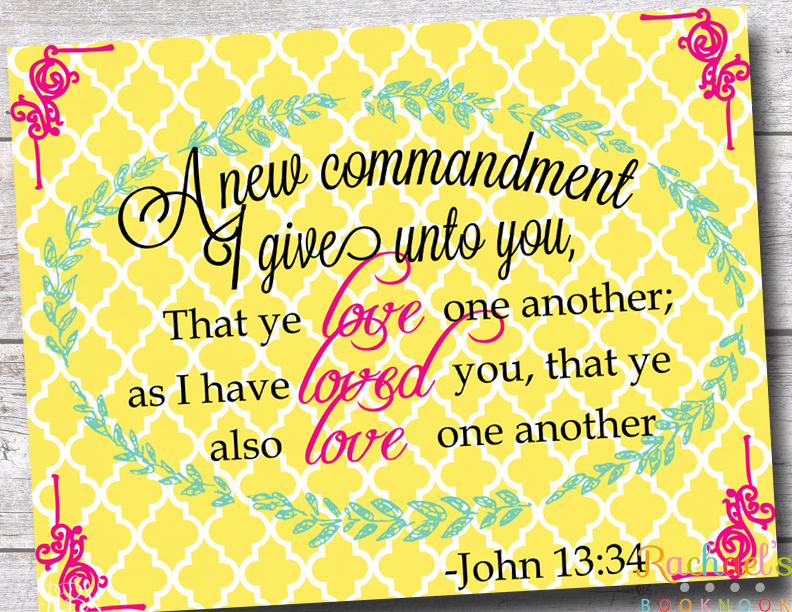 A new commandment
I give unto you,
That ye love one another;
as I have loved you, that ye
also love one another
-John 13:34
Rachael's
BOOKNOOK